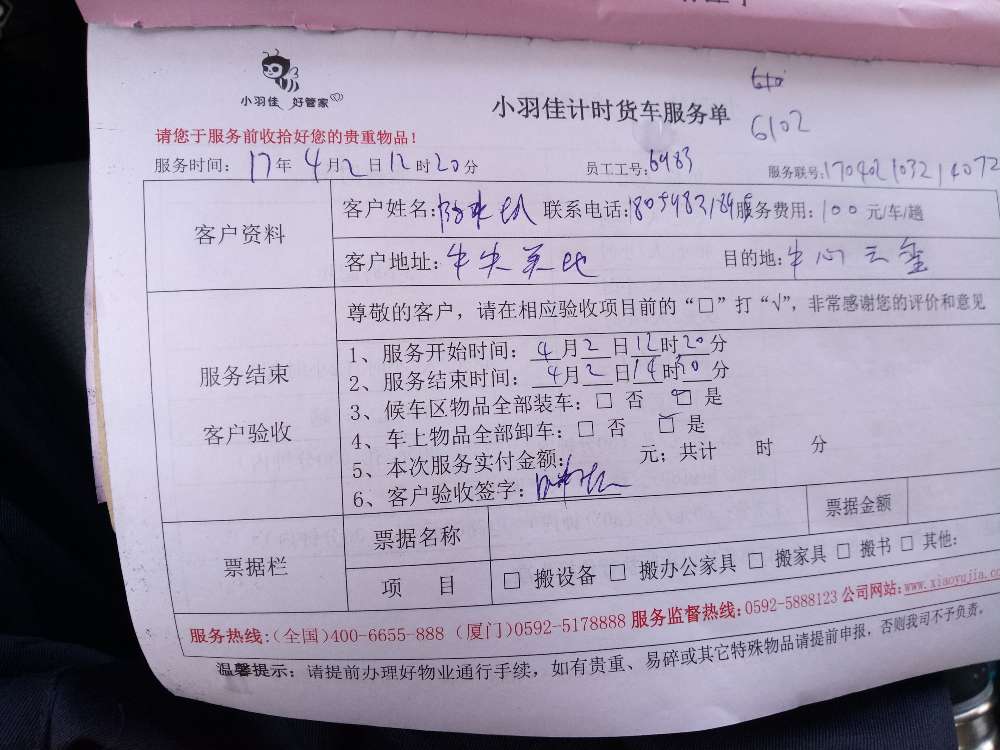 小羽佳 好管家
小羽佳计时货车服务单
6102
请您于服务前收拾好您的贵重物品！
服务时间：17年4月2日12时20分 员工工号：6983 服务联号：170402103214072
客户资料
客户姓名： 联系电话： 服务费用：100元/车/趟
客户地址： 目的地：中心
服务结束
客户验收
尊敬的客户，请在相应验收项目前的“□”打“√”，非常感谢您的评价和意见
1、服务开始时间：4月2日12时20分
2、服务结束时间：4月2日14时20分
3、候车区物品全部装车：□ 否 □ 是
4、车上物品全部卸车：□ 否 □ 是
5、本次服务实付金额： 元；共计 时 分
6、客户验收签字：
票据栏
票据名称 票据金额
项 目 □ 搬设备 □ 搬办公家具 □ 搬家具 □ 搬书 □ 其他：
服务热线：(全国)400-6655-888 (厦门)0592-5178888 服务监督热线：0592-5888123 公司网站：www.xiaoyujia.co
温馨提示：请提前办理好物业通行手续，如有贵重、易碎或其它特殊物品请提前申报，否则我司不予负责。